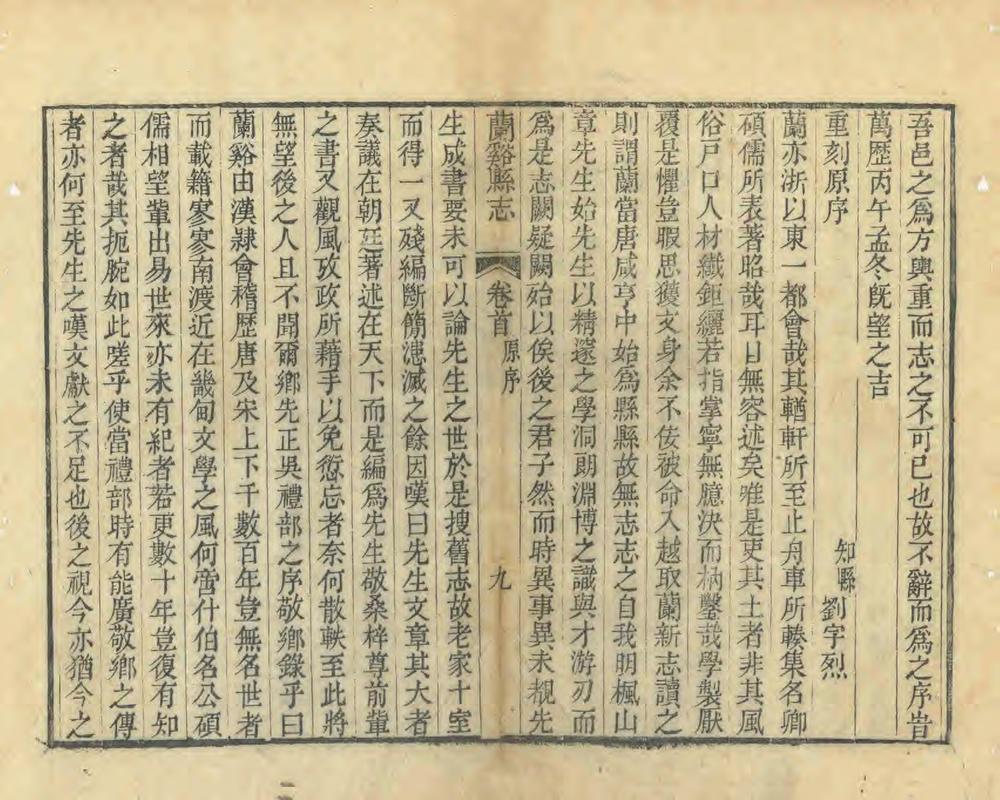 吾邑之爲方輿重而志之不可已也故不辭而爲之序旹
萬歷丙午孟冬旣望之吉
重刻原序
知縣劉宇烈
蘭亦浙以東一都會哉其輶軒所至止舟車所輳集名卿
碩儒所表著昭哉耳目無容述矣唯是吏其土者非其風
俗戸口人材纖鉅纚若指掌寧無臆決而枘鑿哉學製厭
覆是懼豈暇思獲文身余不佞被命入越取蘭新志讀之
則謂蘭當唐咸亨中始爲縣縣故無志志之自我明楓山
章先生始先生以精邃之學洞朗淵博之識與才游刃而
爲是志闕疑闕殆以俟後之君子然而時異事異未覩先
蘭谿縣志
卷首
原序
九
生成書要未可以論先生之世於是搜舊志故老家十室
而得一又殘編斷簡漶滅之餘因嘆曰先生文章其大者
奏議在朝廷著述在天下而是編爲先生敬桑梓尊前輩
之書又觀風攷政所藉手以免愆忘者奈何散軼至此將
無望後之人且不聞爾鄉先正吳禮部之序敬鄉錄乎曰
蘭谿由漢隸會稽歷唐及宋上下千數百年豈無名世者
而載籍寥寥南渡近在畿甸文學之風何啻什伯名公碩
儒相望輩出易世來亦未有紀者若更數十年豈復有知
之者哉其扼腕如此嗟乎使當禮部時有能廣敬鄉之傳
者亦何至先生之嘆文獻之不足也後之視今亦猶今之